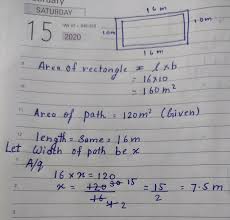 SATURDAY
15
2020
16m
10m
10m
16m
Area of rectangle = l x b
= 16x10
= 160m²
Area of path = 120m² (Given)
length = Same = 16m
Let width of path be x
A/q
16 x x = 120
x = 120 30 15 = 15 = 7.5m
16 4 2 2